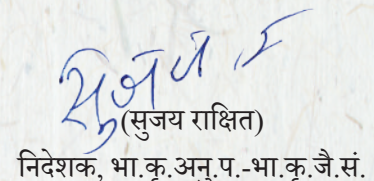 (सुजय राक्षित)
निदेशक, भा.कृ.अनु.प.-भा.कृ.जै.सं.